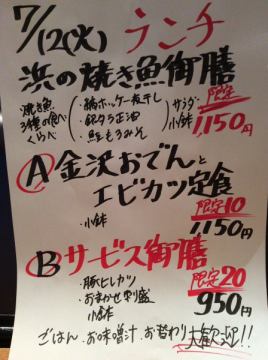 7/12(火) ランチ
浜の焼き魚御膳
焼き魚3種の食べくらべ
・縞ホッケ一夜干し
・銀ダラ正油
・鮭もろみそ
サラダ・小鉢
限定
1,150円
Ⓐ金沢おでんと
エビカツ定食
・小鉢
限定10
1,150円
Ⓑサービス御膳
・豚ヒレカツ
・おまかせ刺盛
・小鉢
限定20
950円
ごはん お味噌汁 お替わり 大歓迎!!